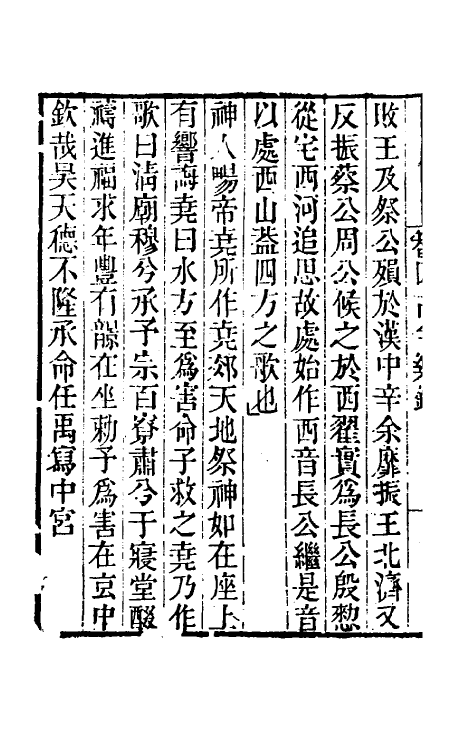 敗王及祭公殞於漢中辛余靡振王北濟又
反振蔡公周公候之於西翟實為長公殷愸
從宅西河追思故處始作西音長公繼是音
以處西山葢四方之歌也
神人暢帝堯所作堯郊天地祭神如在座上
有響誨堯曰水方至為害命子救之堯乃作
歌曰淸廟穆兮承予宗百寮肅兮于寢堂醊
禱進福求年豐有嚮在坐勑予為害在㝎中
欽哉昊天德不隆承命任禹寫中宮